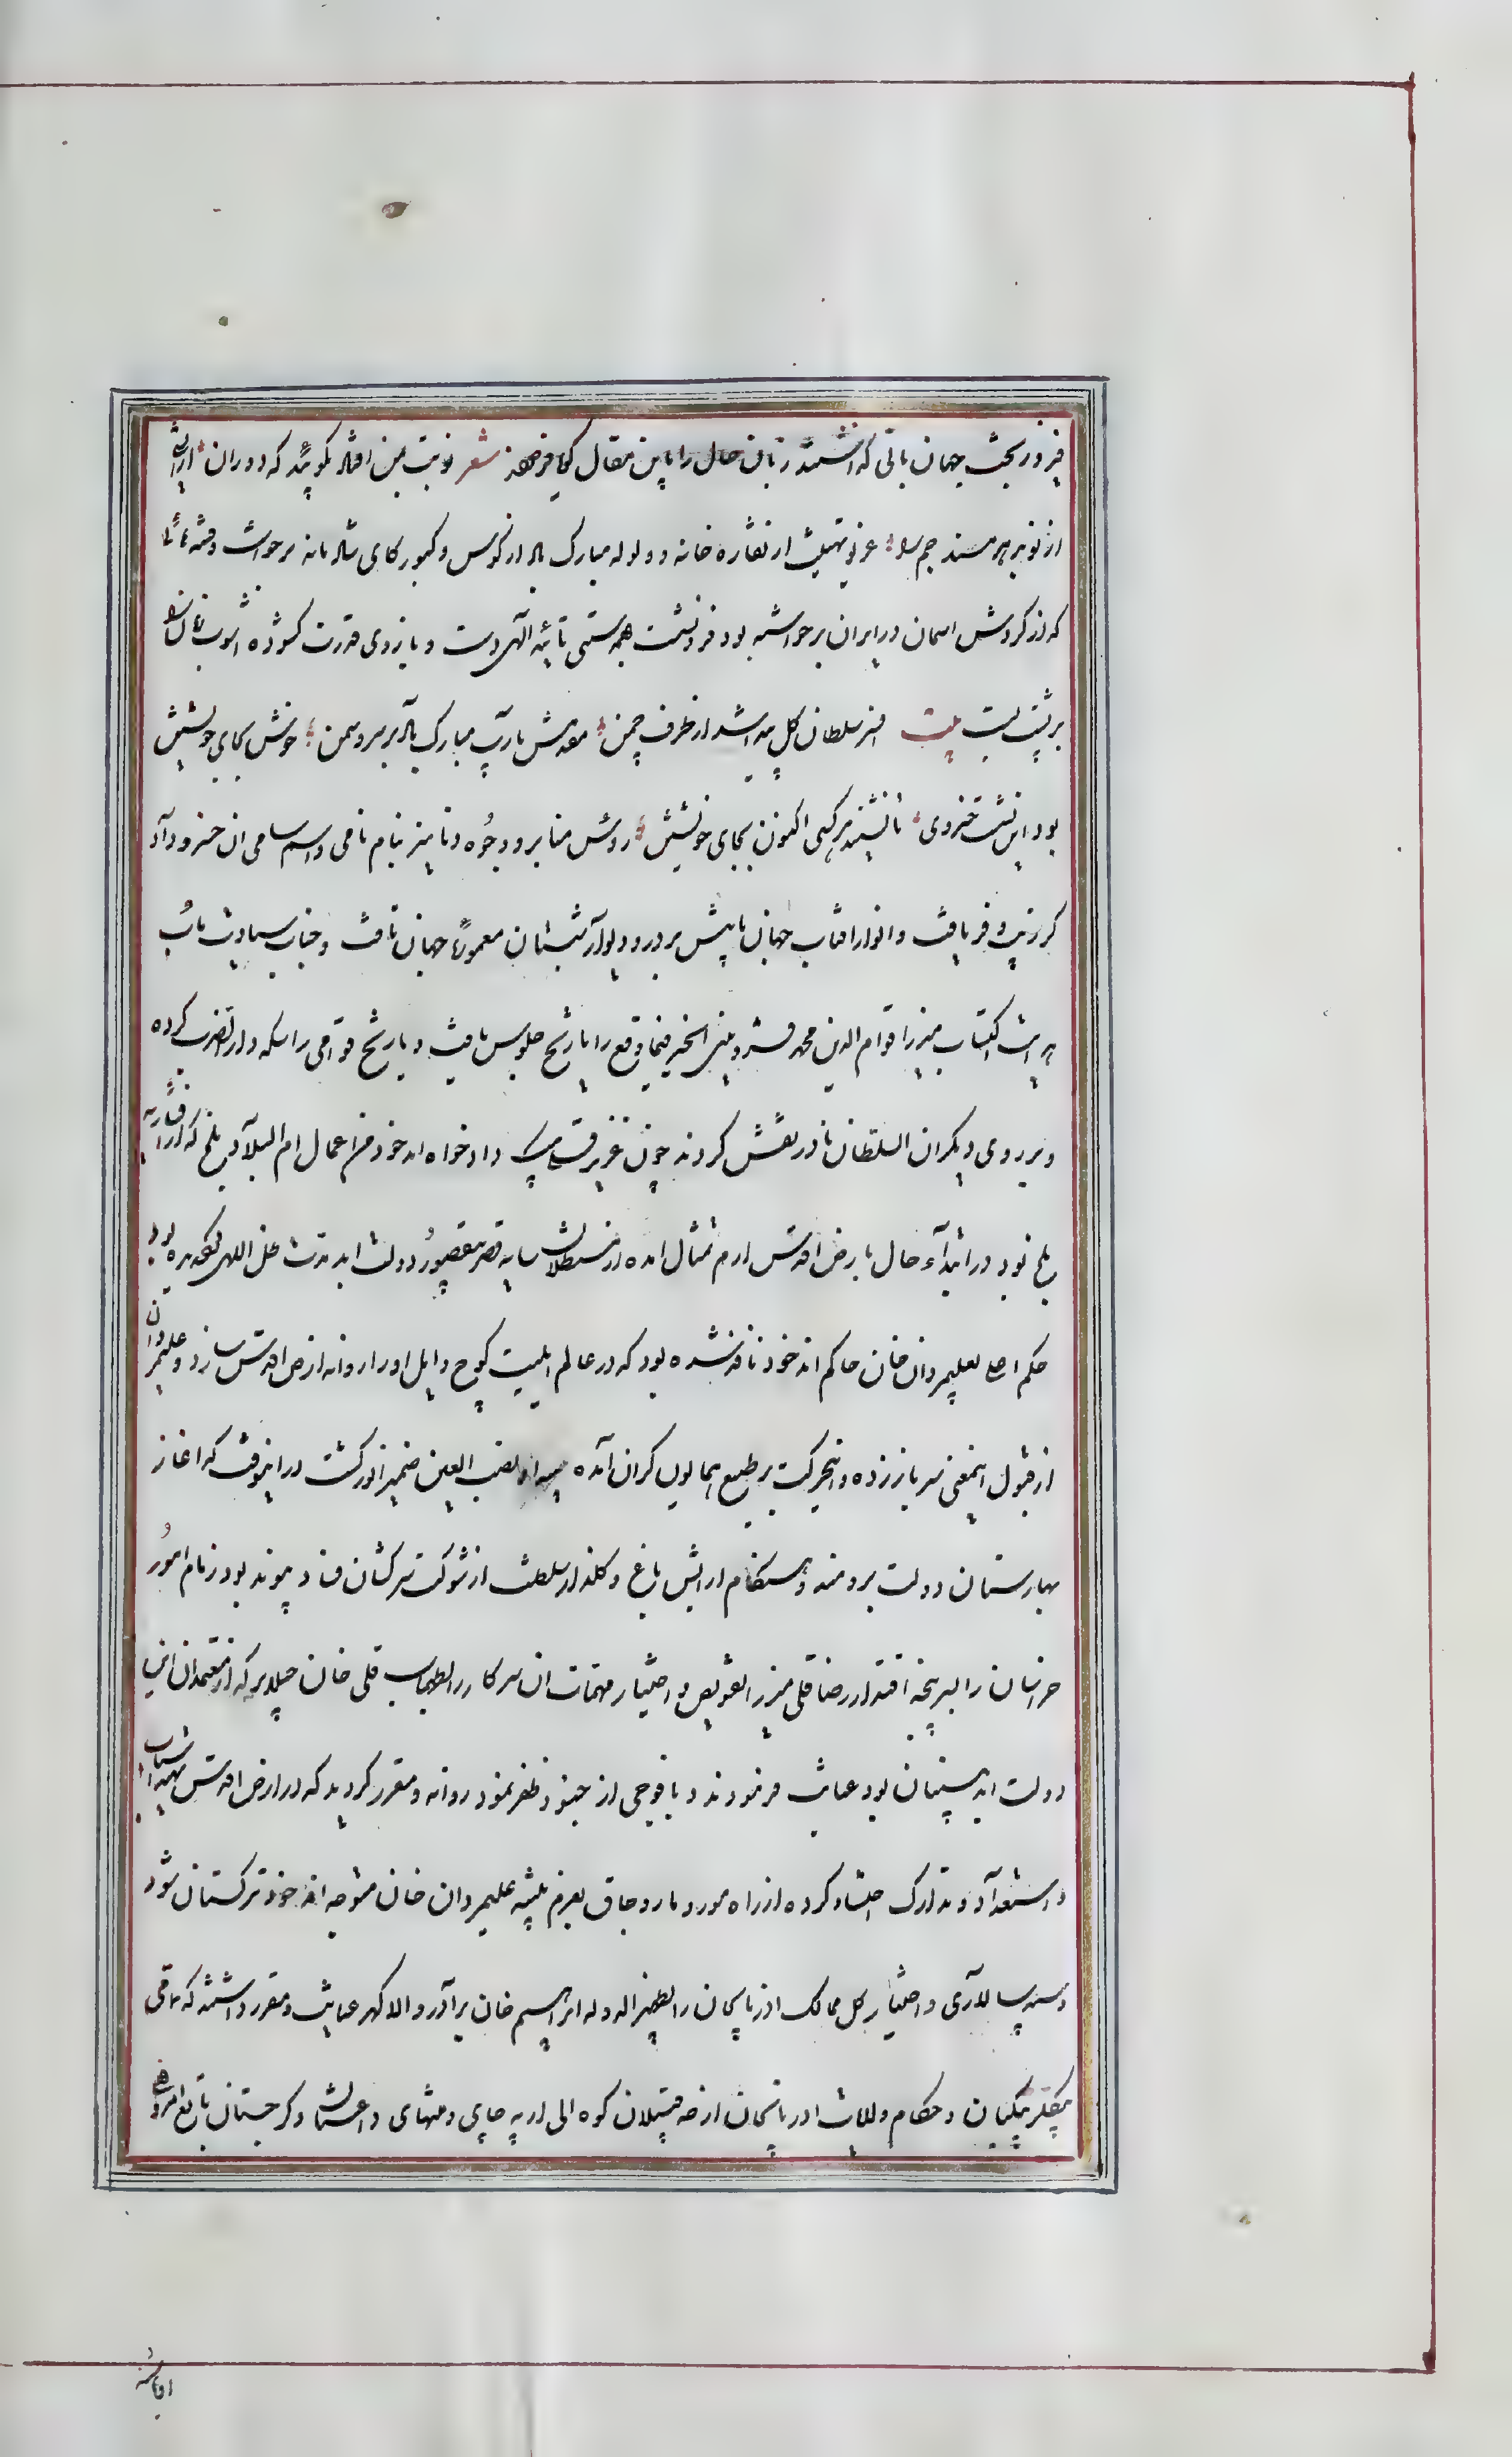 فیروزبخت جهانبانی گذاشتند زبان حال را باین مقال گویا فرمود شعر نوبت من افتاد بگوئید که دوران آرایش
از نو بر سر مسند جم را غریو تهنیت از نقاره خانه و ولوله مبارک باد از کوس و کبورکای شادمانه برخواست و فتنه‌ها
که از گردش اسمان در ایران برخواسته بود فرونشست همه ستی تائید الهی دست و بازوی قدرت گشوده اشوب
بر پشت بست بیت افسر سلطان گل پیدا شد از طرف چمن مقدمش یارب مبارک باد بر سرو و سمن خوش بجای خویشتن
بود این نشست خسروی تا نشیند هر کسی اکنون بجای خویشتن روس منابر و وجوه دنانیر بنام نامی و اسم سامی ان خسرو دادگر
زیب و فر یافت و انوار افتاب جهانبانیش بر در و دیوار شبستان معموره جهان تافت و جناب سیادت ماب
میرزا قوام الدین محمد قزوینی الخیر فیما وقع را تاریخ جلوس یافت و تاریخ قوامی را سکه دار الضرب کرده
و بر روی دیگران السلطان نادر نقش کردند چون عزیز قلی بیک دادخواه اندخود من اعمال ام البلاد بلخ که از افشاریه
بلخ بود در ابتداء حال بارض اقدس ارم تمثال امده در استظلال سایه قصر بیقصور دولت ابد مدت ظل اللهی بود
حکم اعلی بعلیمردان خان حاکم اندخود نافذ شده بود که در عالم ایلیت کوچ و ایل او را روانه ارض اقدس سازد و علیمردان
از قبول اینمعنی سر باز زده و اینحرکت بر طبع همایون گران آمده نصب العین ضمیر انور گشت در اینوقت که اغاز
بهارستان دولت برومند و هنگام ارایش باغ و گلزار سلطنت از شوکت سرکشان فساد پیوند بود زمام امور
خراسان را بسرپنجه اقتدار رضا قلی میرزا تفویض و اختیار مهمات ان سرکار را بطهماسب قلی خان جلایر که از معتمدان این
دولت ابد بنیان بود عنایت فرمودند و با فوجی از جنود ظفر نمود روانه و مقرر گردید که در ارض اقدس تهیه اسباب
و استعداد و تدارک احتشاد کرده از راه مرو و ماروچاق بعزم تنبیه علیمردان خان متوجه اندخود ترکستان شود
و سپهسالاری و اختیار کل ممالک اذربایجان را بظهیر الدوله ابراهیم خان برادر والا گهر عنایت و مقرر داشتند که تمامی
بیگلربیگیان و حکام ولایات اذربایجان از حد قپلان کوه الی ارپه چای و منتهای داغستان و گرجستان تابع امر و نهی